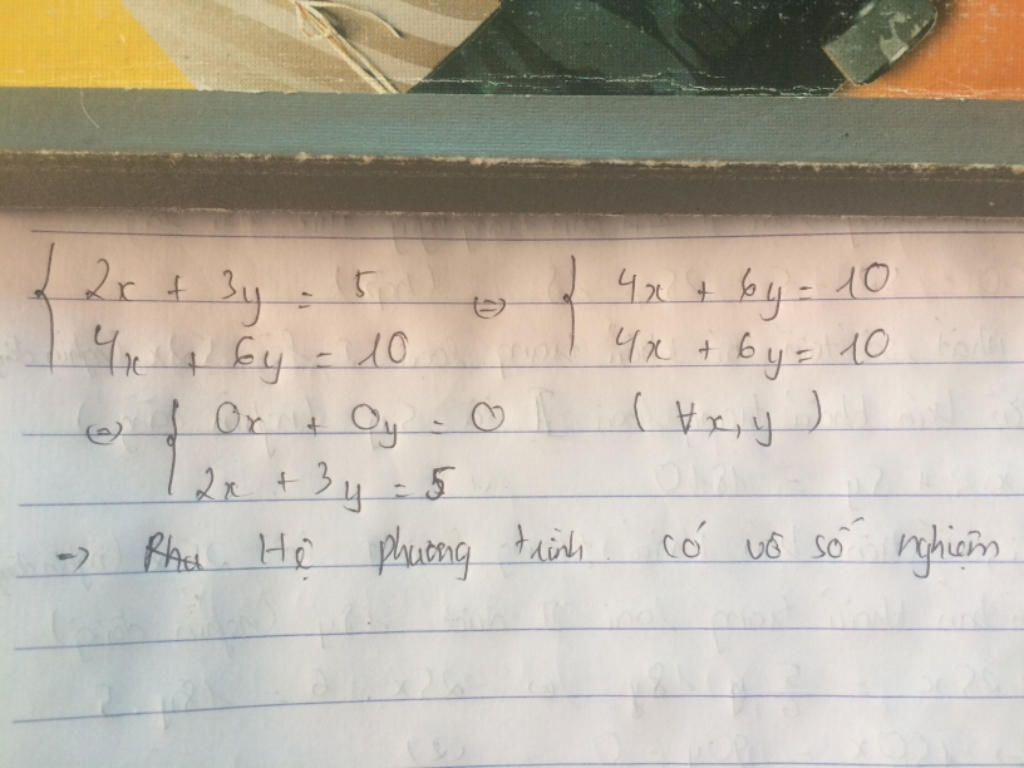 { 2x + 3y = 5 ⇔ { 4x + 6y = 10
4x + 6y = 10 4x + 6y = 10
⇔ { 0x + 0y = 0 (∀x, y)
2x + 3y = 5
→ Hệ phương trình có vô số nghiệm